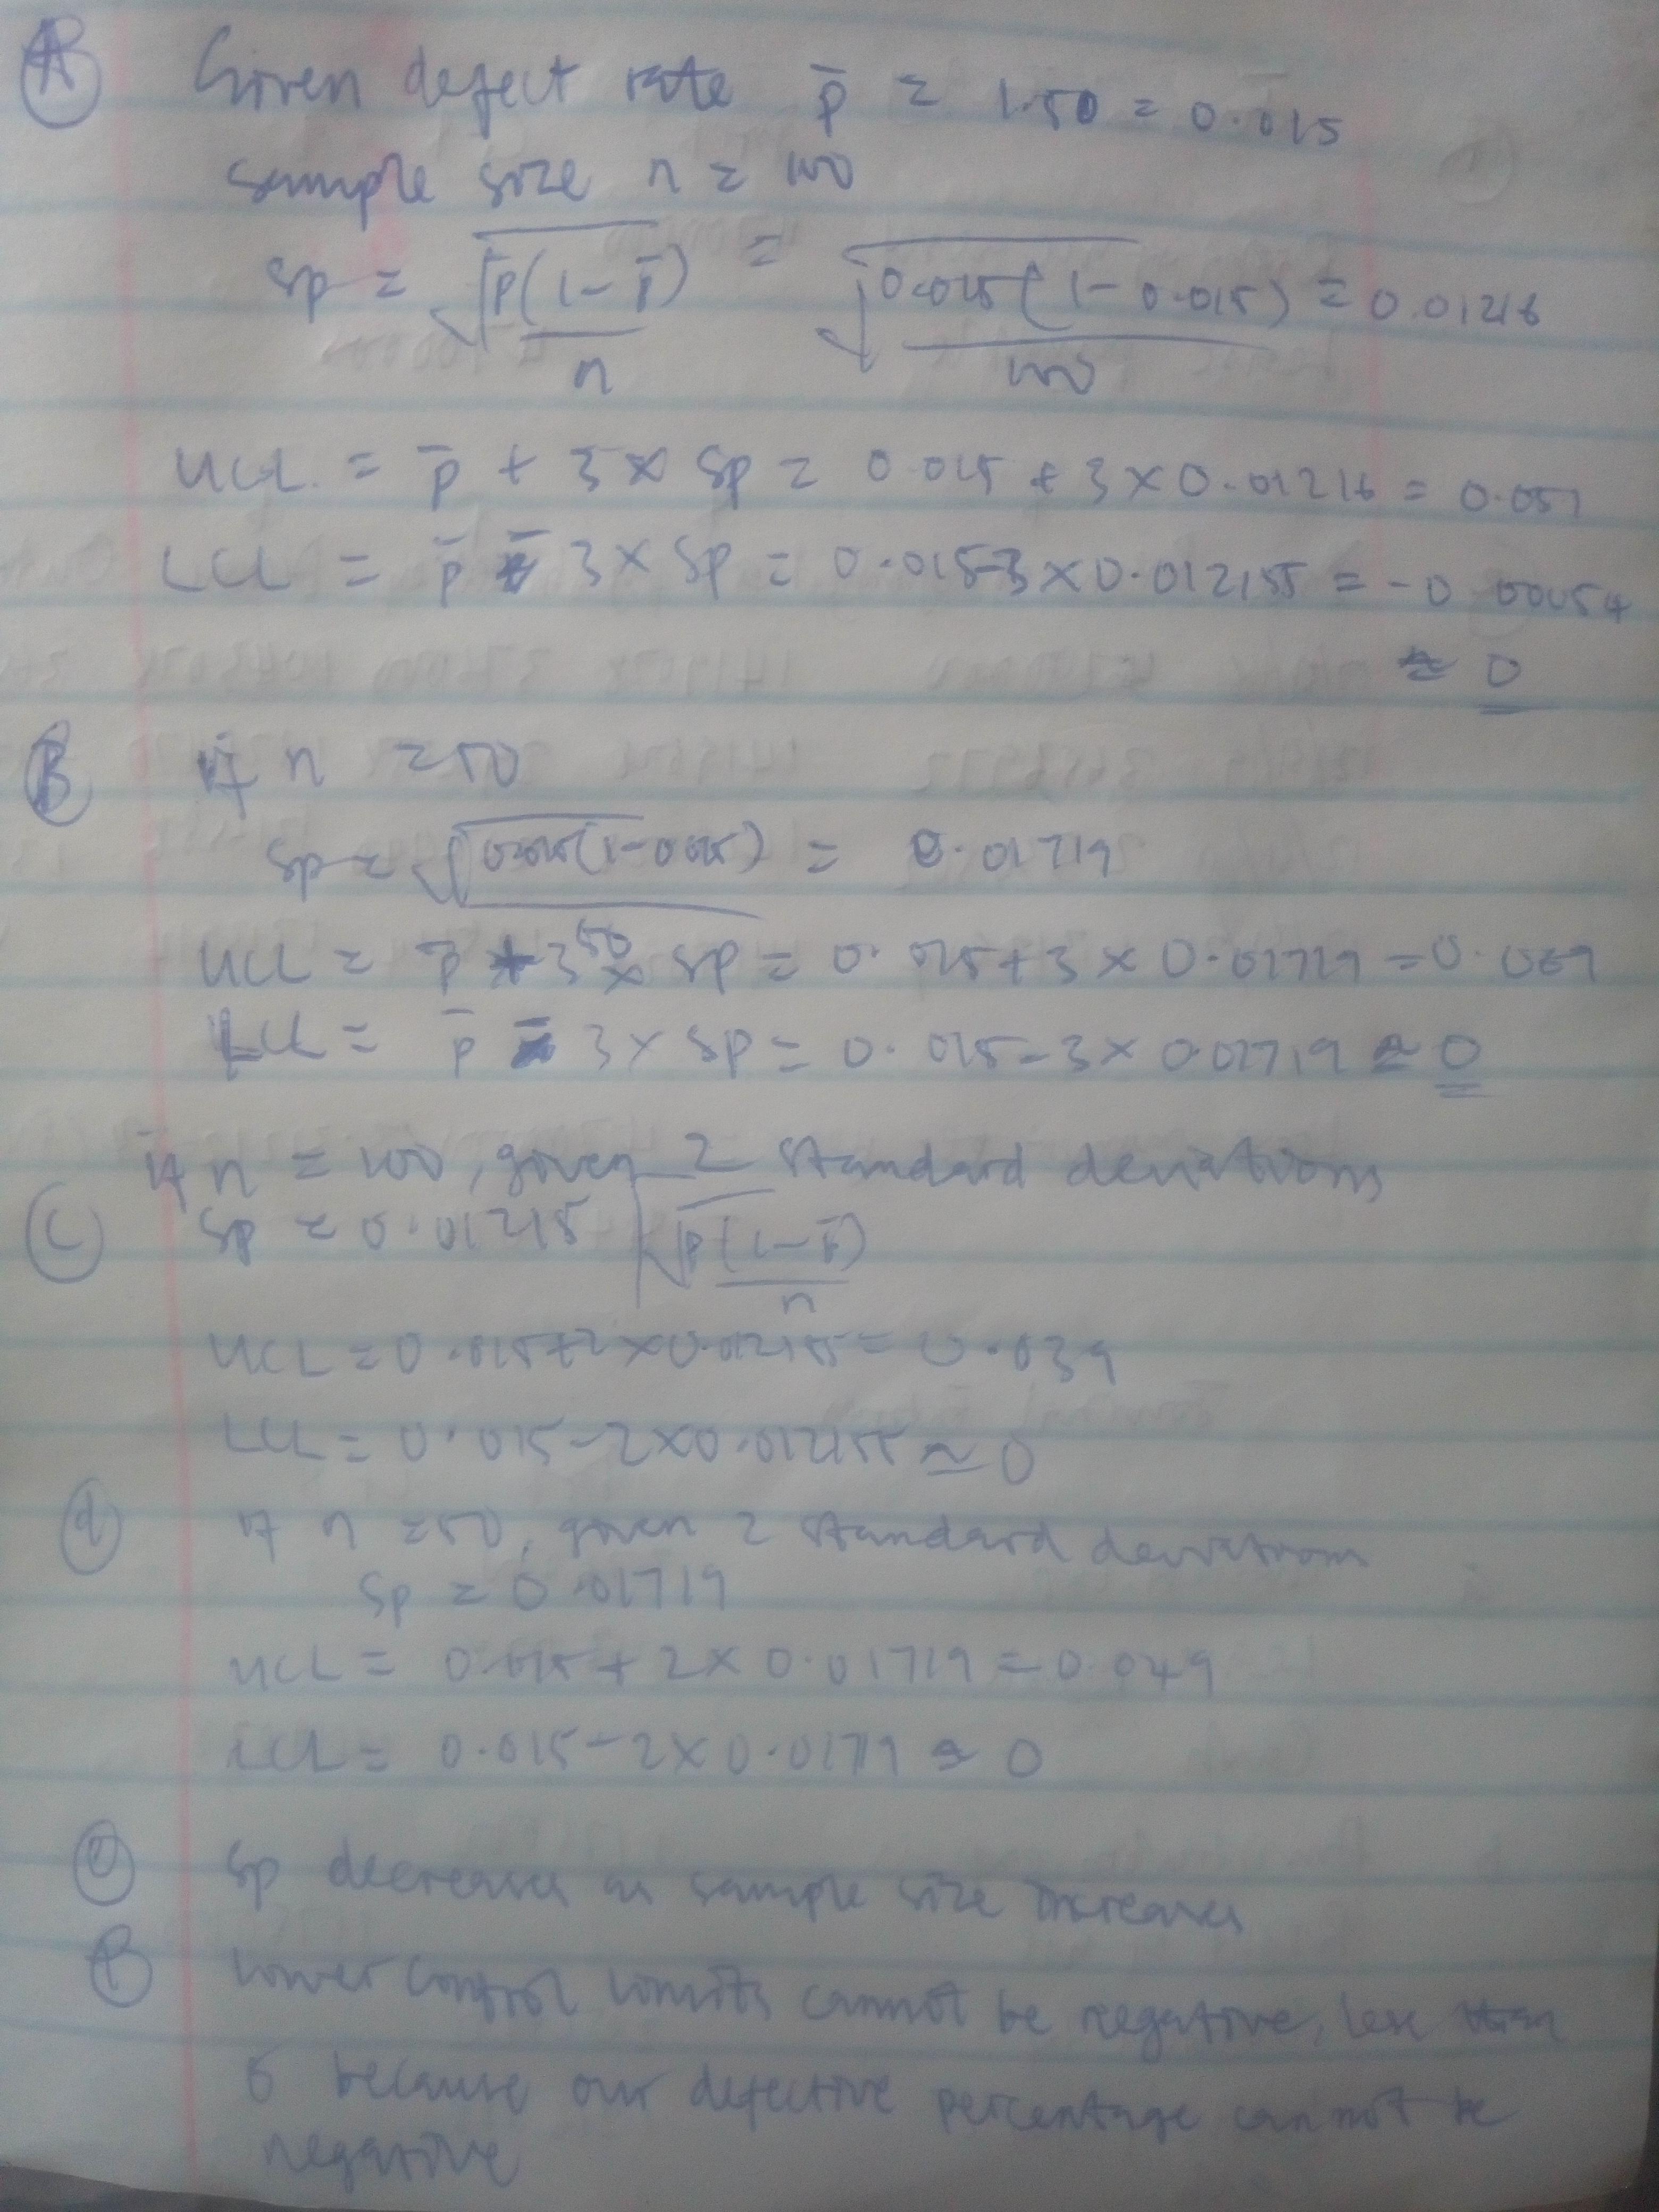 A Given defect rate p̄ = 1.50 = 0.015
sample size n = 100
Sp = √(p̄(1-p̄)/n) = √(0.015(1-0.015)/100) = 0.01216
UCL. = p̄ + 3 x Sp = 0.015 + 3 x 0.01216 = 0.051
LCL = p̄ - 3 x Sp = 0.015-3 x 0.012155 = -0.00054
≈ 0
B if n = 50
Sp = √(0.015(1-0.015)/50) = 0.01719
UCL = p̄ + 3 x Sp = 0.015 + 3 x 0.01719 = 0.069
LCL = p̄ - 3 x Sp = 0.015 - 3 x 0.01719 ≈ 0
if n = 100, given 2 standard deviations
C Sp = 0.01215 √(p̄(1-p̄)/n)
UCL = 0.015+2 x 0.012155 = 0.039
LCL = 0.015 - 2 x 0.012155 ≈ 0
d if n = 50, given 2 standard deviations
Sp = 0.01719
UCL = 0.015 + 2 x 0.01719 = 0.049
LCL = 0.015 - 2 x 0.01719 ≈ 0
e Sp decreases as sample size increases
f Lower control limits cannot be negative, less than
0 because our defective percentage cannot be
negative